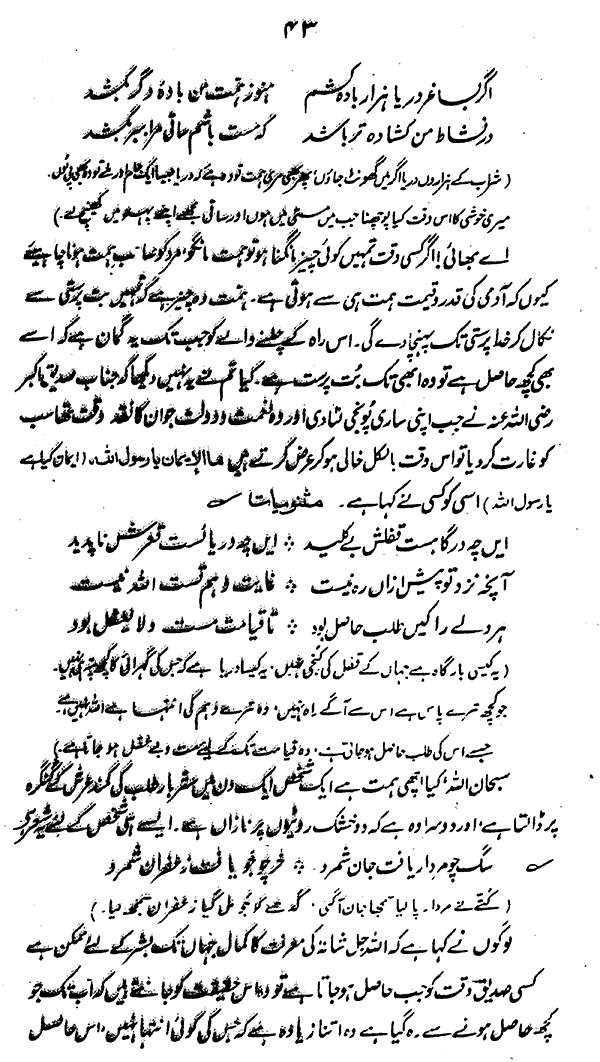 ۴۳
اگر بساغر دریا ہزار بادہ کشم ہنوز ہمت من بادۂ دگر کشد
در نشاط من کشادہ تر باشد کہ مست باشم ساقی مرا ببر کشد
(شراب کے ہزاروں دریا اگر میں گھونٹ جاؤں، پھر بھی میری ہمت تو وہ ہے کہ دریا جیسا ایک جام اور ملے تو وہ بھی پی لوں۔
میری خوشی کا اس وقت کیا پوچھنا جب میں مستی میں ہوں اور ساقی مجھے اپنے پہلو میں کھینچ لے۔)
اے بھائی! اگر کسی وقت تمہیں کوئی چیز مانگنا ہو تو ہمت مانگو، مرد کو صاحب ہمت ہونا چاہیے
کیوں کہ آدمی کی قدر و قیمت ہمت ہی سے ہوتی ہے۔ ہمت وہ چیز ہے کہ تمہیں بت پرستی سے
نکال کر خدا پرستی تک پہنچا دے گی۔ اس راہ کے چلنے والے کو جب تک یہ گمان ہے کہ اسے
بھی کچھ حاصل ہے تو وہ ابھی تک بُت پرست ہے۔ کیا تم نے یہ نہیں دیکھا کہ جناب صدیق اکبر
رضی اللہ عنہ نے جب اپنی ساری پونجی لٹا دی اور وہ نعمت و دولت جو ان کا نقد وقت تھا سب
کو غارت کر دیا تو اس وقت بالکل خالی ہو کر عرض کرتے ہیں ما الایمان یا رسول اللہ، (ایمان کیا ہے
یا رسول اللہ) اسی کو کسی نے کہا ہے۔ مثنویات ؎
ایں چہ درگاہست قفلش بے کلید ؞ ایں چہ دریائست قعرش ناپدید
آنچہ نزد تو پیش ازاں رہ نیست ؞ غایت وہم تست اللہ نیست
ہر دلے را کیں طلب حاصل بود ؞ تا قیامت مست و لا یعقل بود
(یہ کیسی بارگاہ ہے جہاں کے قفل کی کنجی نہیں، یہ کیسا دریا ہے کہ جس کی گہرائی کا کچھ پتہ نہیں۔
جو کچھ تیرے پاس ہے اس سے آگے راہ نہیں، وہ تیرے وہم کی انتہا ہے اللہ نہیں ہے۔
جسے اس کی طلب حاصل ہو جاتی ہے، وہ قیامت تک کے لیے مست و بے عقل ہو جاتا ہے۔)
سبحان اللہ، کیا اچھی ہمت ہے ایک شخص ایک دن میں ستر بار طلب کی کمند عرش کے کنگرہ
پر ڈالتا ہے، اور دوسرا وہ ہے کہ دو خشک روٹیوں پر نازاں ہے۔ ایسے ہی شخص کے لیے یہ شعر ہے
؎ سگ چو مردار یافت جان شمرد ؞ خر چو جو یافت زعفران شمرد
(کتّے نے مردار پا لیا سمجھا جان آگئی، گدھے کو جو مل گیا زعفران سمجھ لیا۔)
لوگوں نے کہا ہے کہ اللہ جل شانہٗ کی معرفت کا کمال جہاں تک بشر کے لیے ممکن ہے
کسی صدیق وقت کو جب حاصل ہو جاتا ہے تو وہ اس حقیقت کو جانتے ہیں کہ اب تک جو
کچھ حاصل ہونے سے رہ گیا ہے وہ اتنا زیادہ ہے کہ جس کی کوئی انتہا نہیں، اس حاصل